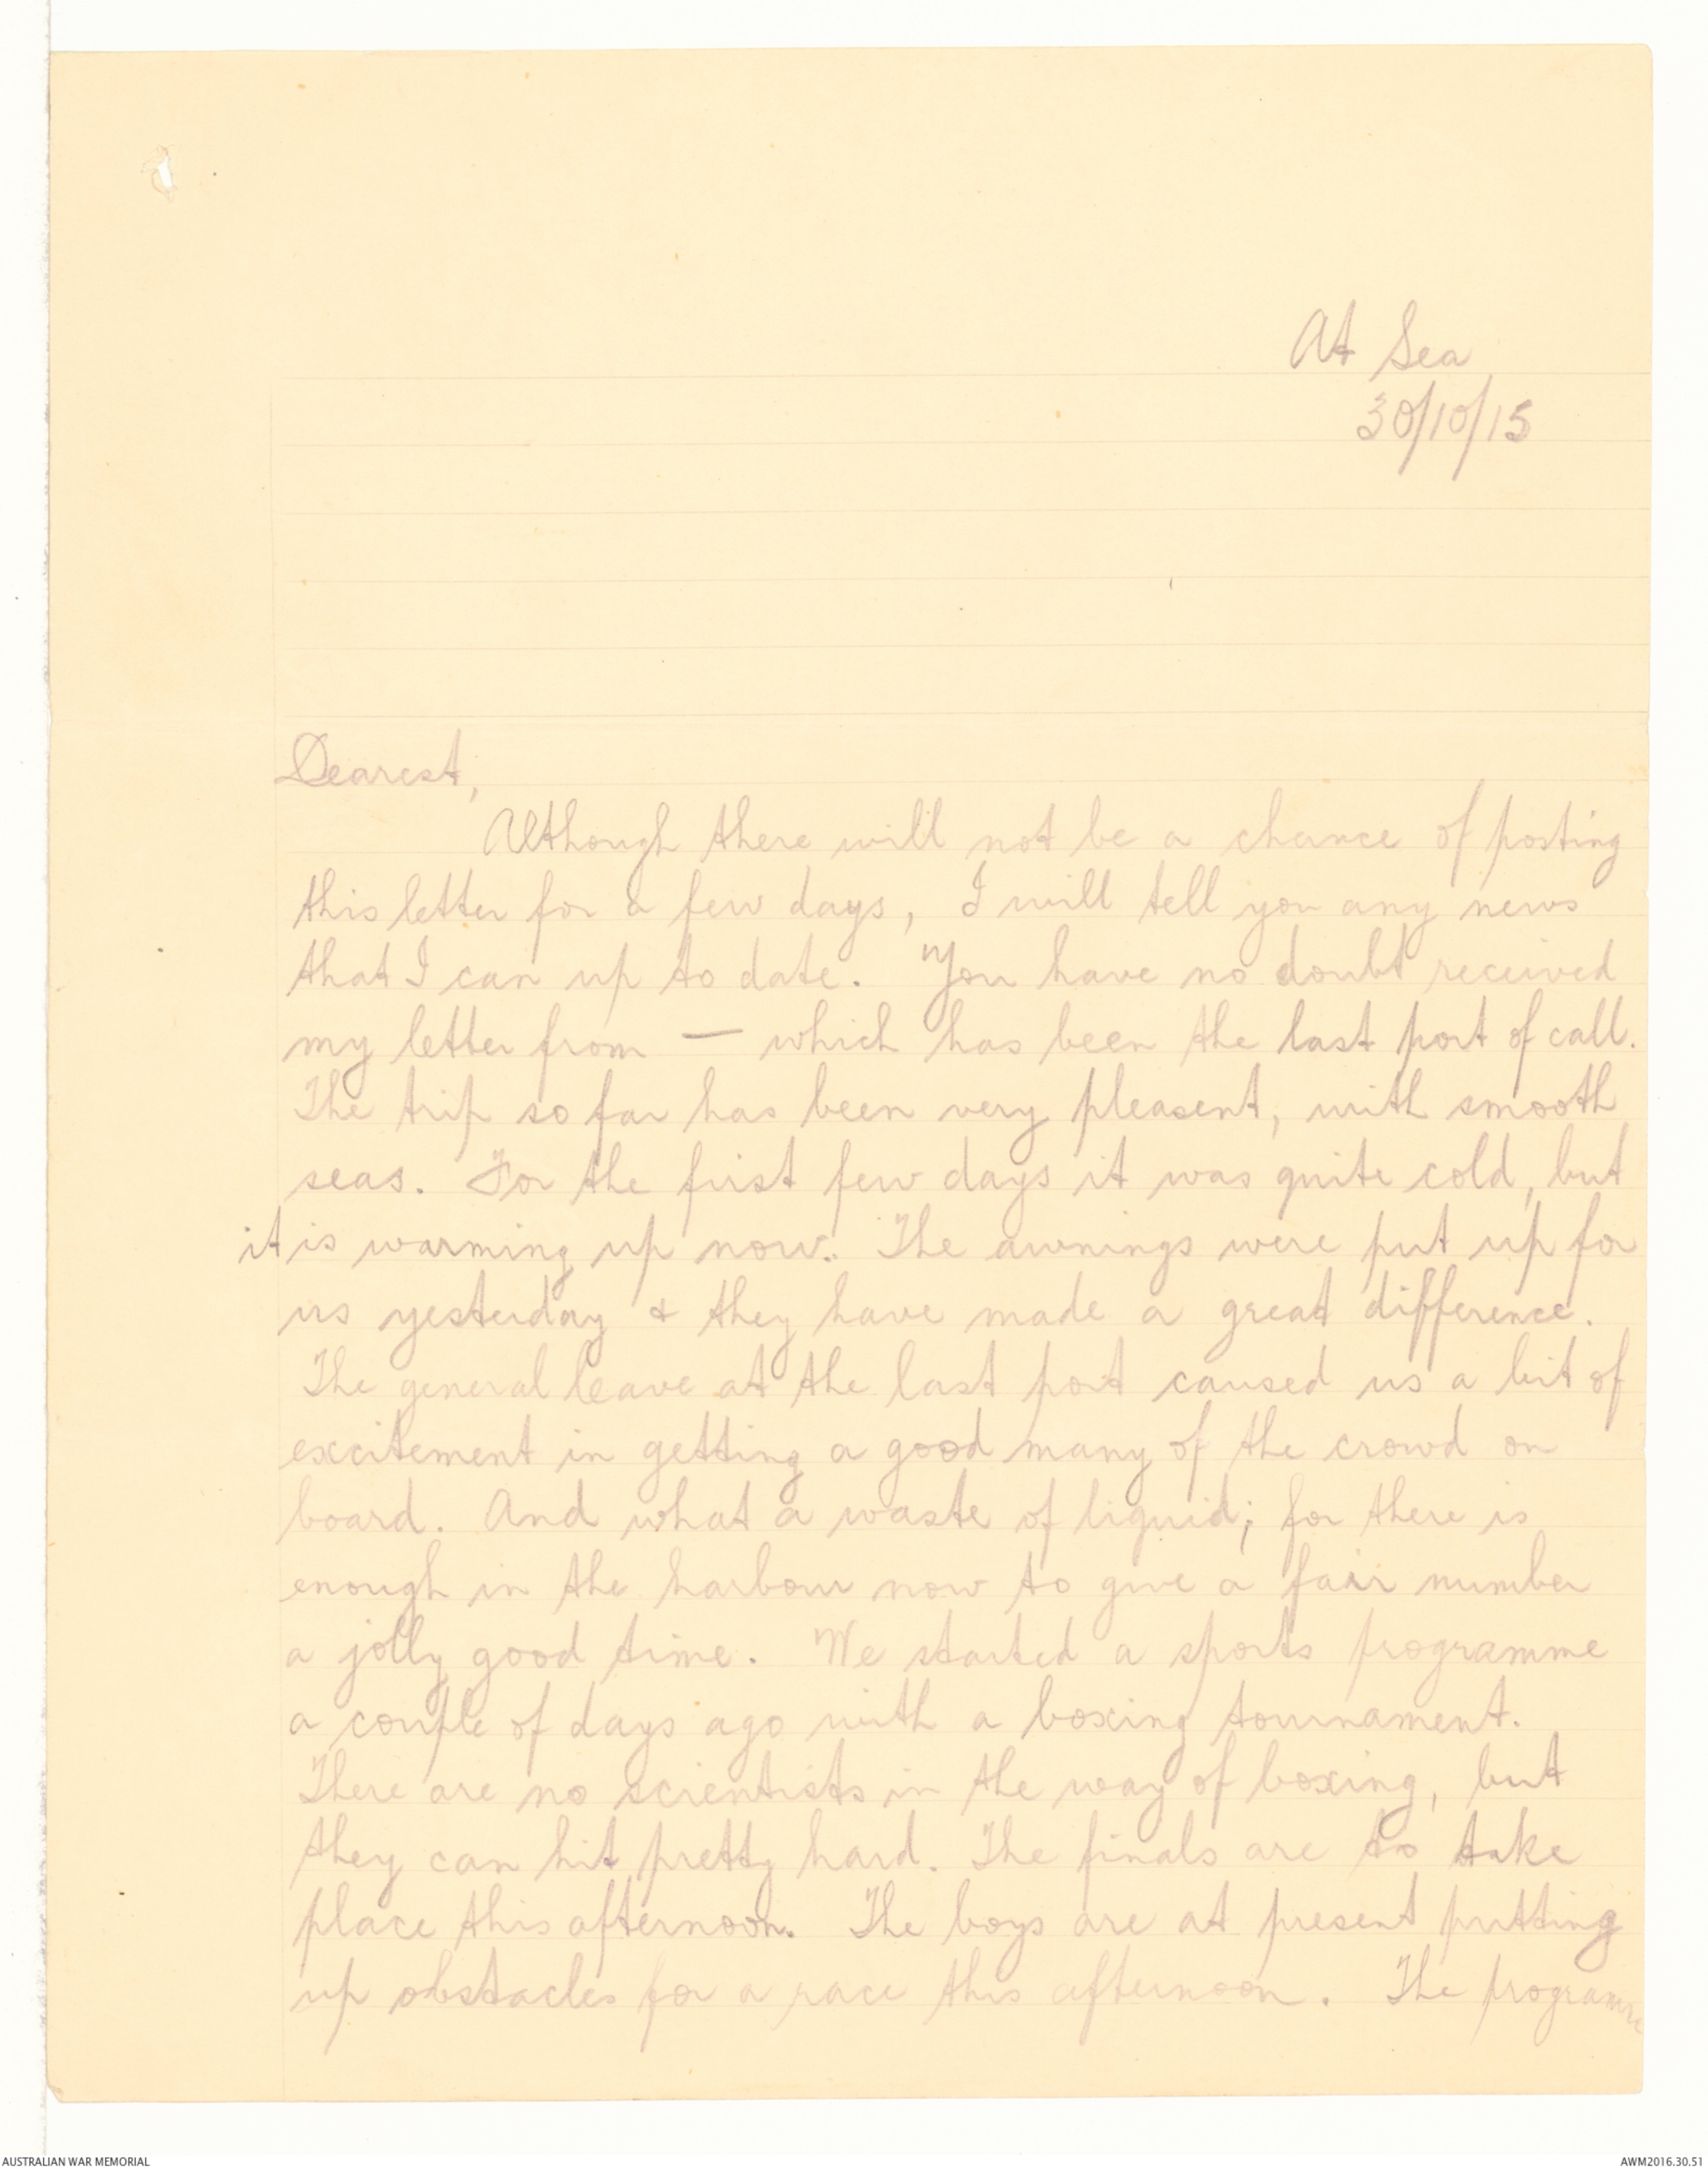 At Sea
30/10/15
Dearest,
Although there will not be a chance of posting
this letter for a few days, I will tell you any news
that I can up to date. You have no doubt received
my letter from — which has been the last port of call.
The trip so far has been very pleasent, with smooth
seas. For the first few days it was quite cold, but
it is warming up now. The awnings were put up for
us yesterday & they have made a great difference.
The general leave at the last port caused us a bit of
excitement in getting a good many of the crowd on
board. And what a waste of liquid; for there is
enough in the harbour now to give a fair number
a jolly good time. We started a sports programme
a couple of days ago with a boxing tournament.
There are no scientists in the way of boxing, but
they can hit pretty hard. The finals are to take
place this afternoon. The boys are at present putting
up obstacles for a race this afternoon. The programme
AUSTRALIAN WAR MEMORIAL
AWM2016.30.51